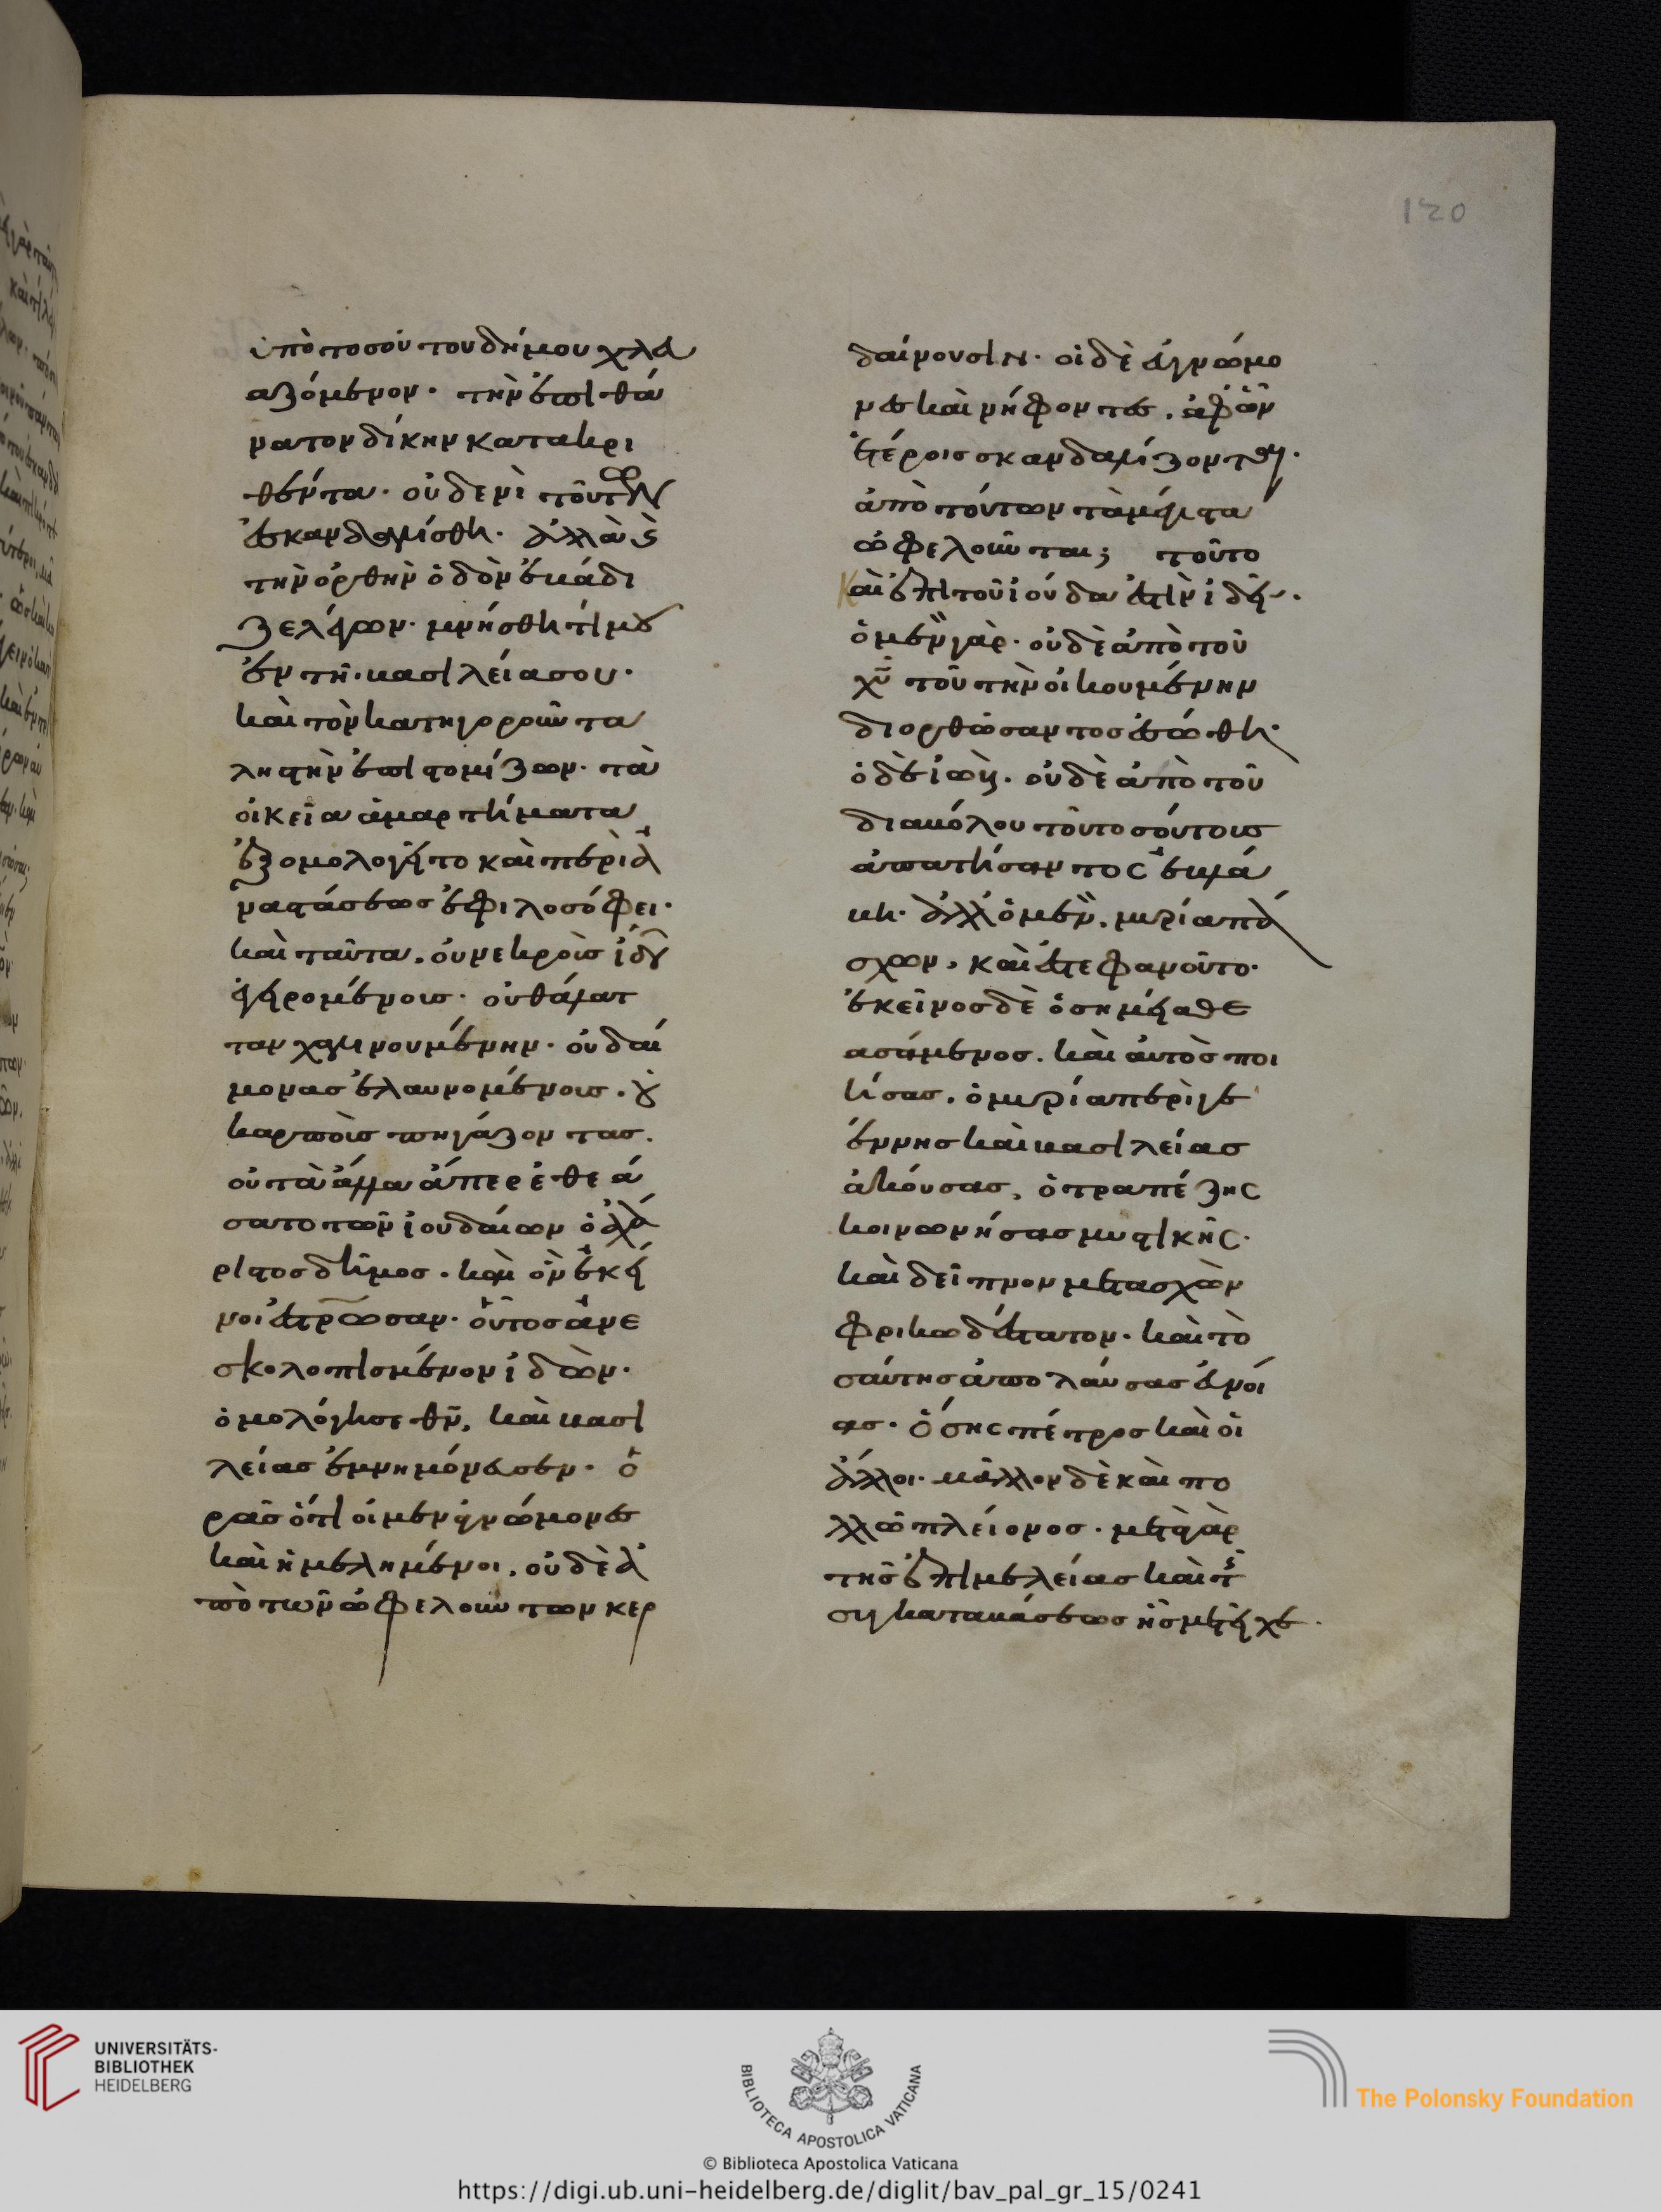 120
ὑπὸ τοσούτου δήμου χλευ
αζόμενον· τὴν ἐπὶ θά
νατον δίκην κατακρι
θέντα· οὐδενὶ τούτων
ἐσκανδαλίσθη· ἀλλὰ καὶ
τὴν ὀρθὴν ὁδὸν ἐβάδι
ζε λέγων· μνήσθητί μου
ἐν τῇ βασιλείᾳ σου·
καὶ τὸν κατηγοροῦντα
ληστὴν ἐπιστομίζων· τὰ
οἰκεῖα ἁμαρτήματα
ἐξομολογεῖτο καὶ περὶ ἀ
ναστάσεως ἐφιλοσόφει·
καὶ ταῦτα, οὐ νεκροὺς ἰδὼν
ἐγειρομένους· οὐ θάλατ
ταν χαλινουμένην· οὐ δαί
μονας ἐλαυνομένους· οὐ
οὐ τὰ ἄλλα ἅπερ ἐθεά
σατο τῶν ἰουδαίων ὁ ἀχά
ριστος δῆμος· καὶ ὃν ἐκεῖ
νοι ἐσταύρωσαν· οὗτος ἀνε
σκολοπισμένον ἰδὼν·
ὁμολόγησε θν, καὶ βασι
λείας ἐμνημόνευσεν· ὁ
ρᾶς ὅτι οἱ μὲν ἀγνώμονες
καὶ ἠμελημένοι, οὐδὲ ἀ
πὸ τῶν ὠφελούντων κερ
δαίνουσιν· οἱ δὲ εὐγνώμο
νες καὶ νήφοντες, ἀφ' ὧν
ἕτεροι σκανδαλίζονται·
ἀπὸ τούτων τὰ μέγιστα
ὠφελοῦνται; τοῦτο
καὶ ἐπὶ τοῦ ἰούδα ἔστιν ἰδεῖν·
ὁ μὲν γὰρ· οὐδὲ ἀπὸ τοῦ
χυ τοῦ τὴν οἰκουμένην
διορθώσαντος ἐσώθη·
ὁ δὲ ἰὼβ. οὐδὲ ἀπὸ τοῦ
διαβόλου τοῦ τοσούτους
ἀπατήσαντος ἐβλά
βη· ἀλλ' ὁ μὲν, μυρία πά
σχων, καὶ ἐστεφανοῦτο·
ἐκεῖνος δὲ ὁ σημεῖα θε
ασάμενος. καὶ αὐτὸς ποι
ήσας, ὁ μυρία περὶ γε
έννης καὶ βασιλείας
ἀκούσας, ὁ τραπέζης
κοινωνήσας μυστικῆς·
καὶ δεῖπνον μετασχὼν
φρικωδέστατον· καὶ το
σαύτης ἀπολαύσας εὐνοί
ας· ὅσης πέτρος καὶ οἱ
ἄλλοι· μᾶλλον δὲ καὶ πο
λλῷ πλείονος· μετὰ γὰρ
τῆς ἐπιμελείας καὶ τῆς
συγκαταβάσεως ἧς μετεῖχε
UNIVERSITÄTS-
BIBLIOTHEK
HEIDELBERG
BIBLIOTECA APOSTOLICA VATICANA
The Polonsky Foundation
© Biblioteca Apostolica Vaticana
https://digi.ub.uni-heidelberg.de/diglit/bav_pal_gr_15/0241